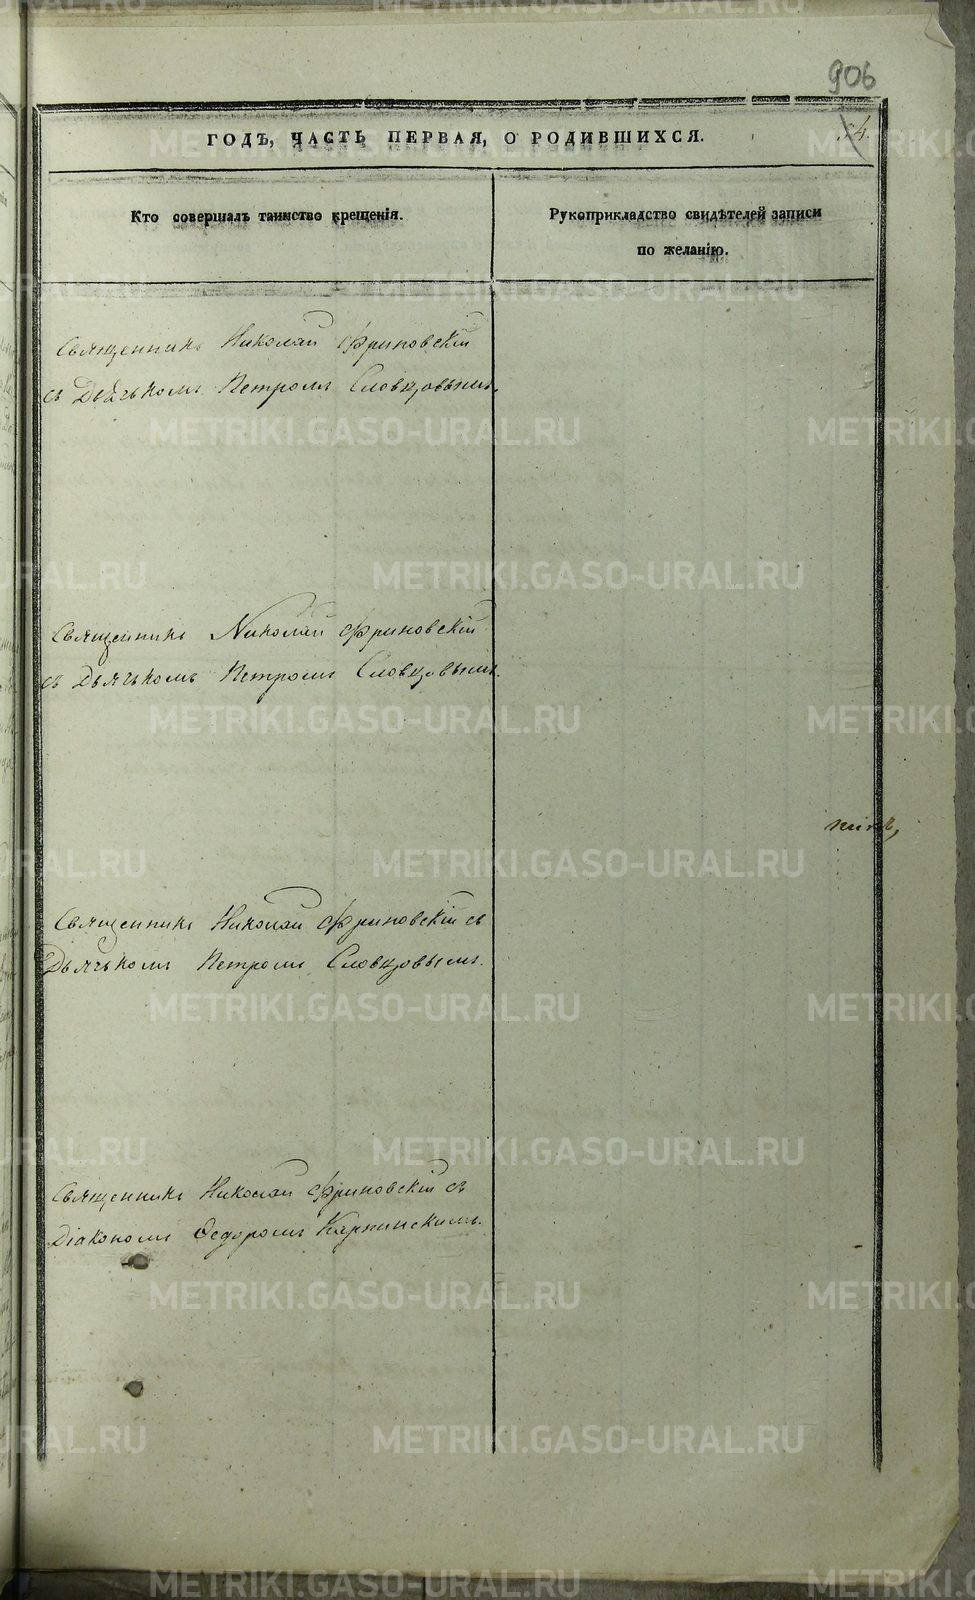 906
54.
ГОДЪ, ЧАСТЬ ПЕРВАЯ, О РОДИВШИХСЯ.
Кто совершалъ таинство крещенія.
Рукоприкладство свидѣтелей записи
по желанію.
Священникъ Николай Фриновскій
съ Дьячькомъ Петромъ Словцовымъ.
Священникъ Николай Фриновскій
съ Дьячькомъ Петромъ Словцовымъ.
Священникъ Николай Фриновскій съ
Дьячькомъ Петромъ Словцовымъ.
Священникъ Николай Фриновскій съ
Діакономъ Ѳедоромъ Карпинскимъ.
METRIKI.GASO-URAL.RU